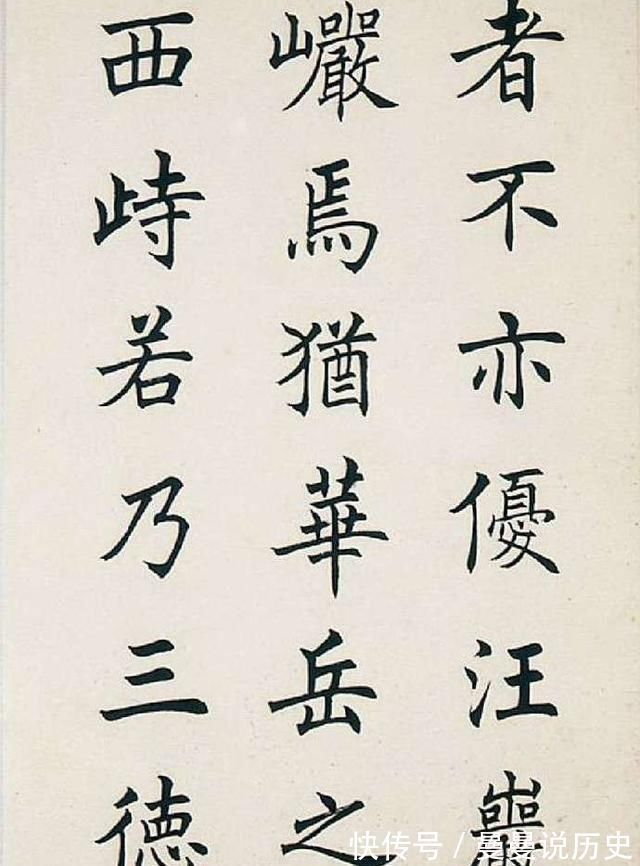 者不亦優汪巖
巗焉猶華岳之
西峙若乃三徳
快传号 / 曼曼说历史